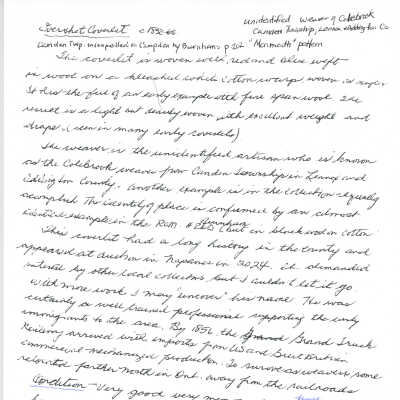 Overshot Coverlet c 1850-60
unidentified Weaver of Colebrook
Camden Township, Lennox & Addington Co.
Camden Twp. incorporated in Camden by Burnhams p 102 "Monmouth" pattern
The coverlet is woven with red and blue weft
in wool on a bleached white cotton warp, woven as single
It has the feel of an early example with fine spun wool. The
result is a light but densely woven with excellent weight and
drape. (seen in many early coverlets)
The weaver is the unidentified artisan who is known
as the Colebrook weaver from Camden Township in Lennox and
Addington County. Another example is in the collection equally
accomplished. The identity of place is confirmed by an almost
identical example in the Rom # Burnham but in black wool on cotton
This coverlet had a long history in the county and
appeared at auction in Napanee in 2024. it demanded
interest by other local collectors, but I couldn't let it go
With more work I may "uncover" his name. He was
certainly a well trained professional supporting the early
immigrants to the area. By 1856, the Grand Trunk
Railway arrived with imports from US and Great Britain
commercial mechanized production. To survive as weavers, some
relocated farther north in Ont. away from the railroads
Condition - Very good very